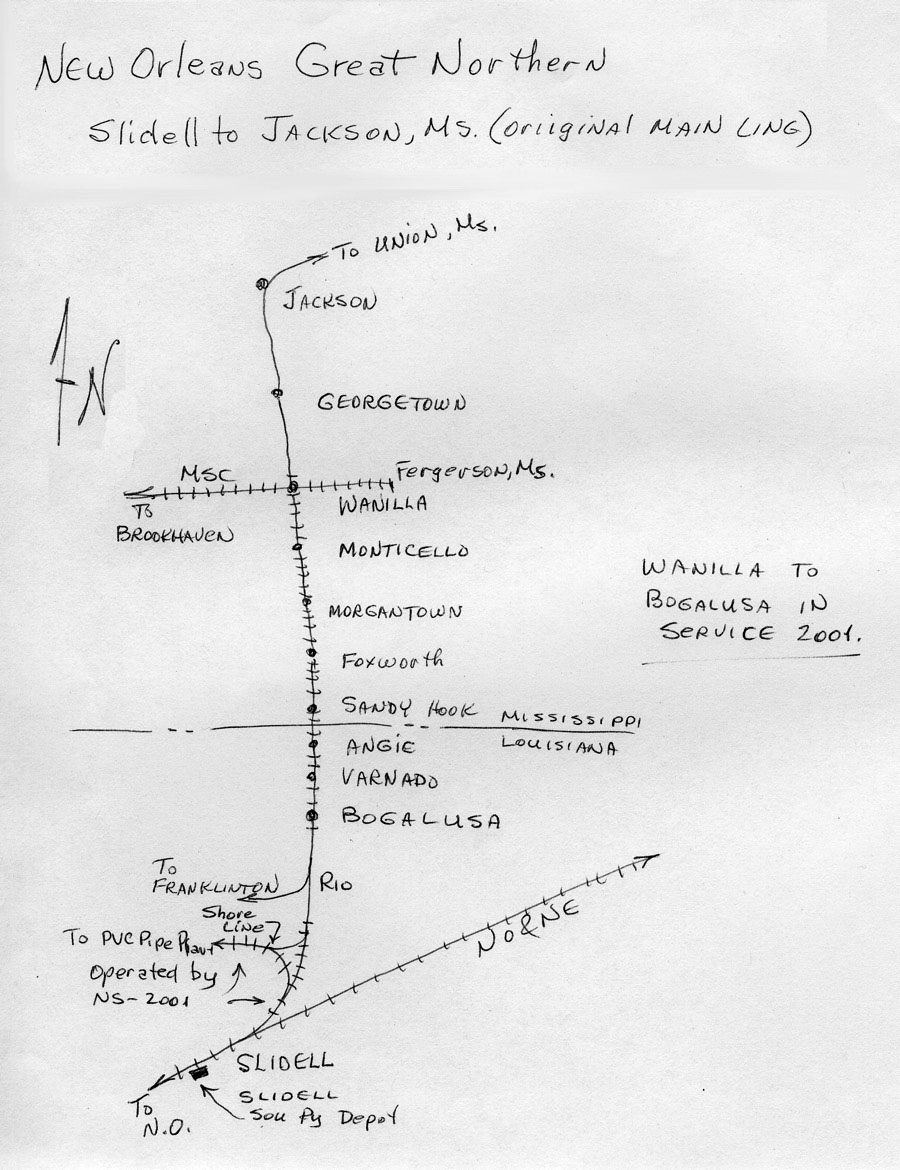 New Orleans Great Northern
Slidell to Jackson, Ms. (oriiginal main ling)
To Union, Ms.
Jackson
N
Georgetown
MSC
Fergerson, Ms.
To
Brookhaven
Wanilla
Monticello
Wanilla to
Bogalusa in
Service 2001.
Morgantown
Foxworth
Sandy Hook
Mississippi
Louisiana
Angie
Varnado
Bogalusa
To
Franklinton
Rio
Shore
Line
To PVC Pipe Plant
NO&NE
Operated by
NS-2001
Slidell
Slidell
Sou Ry Depot
To
N.O.